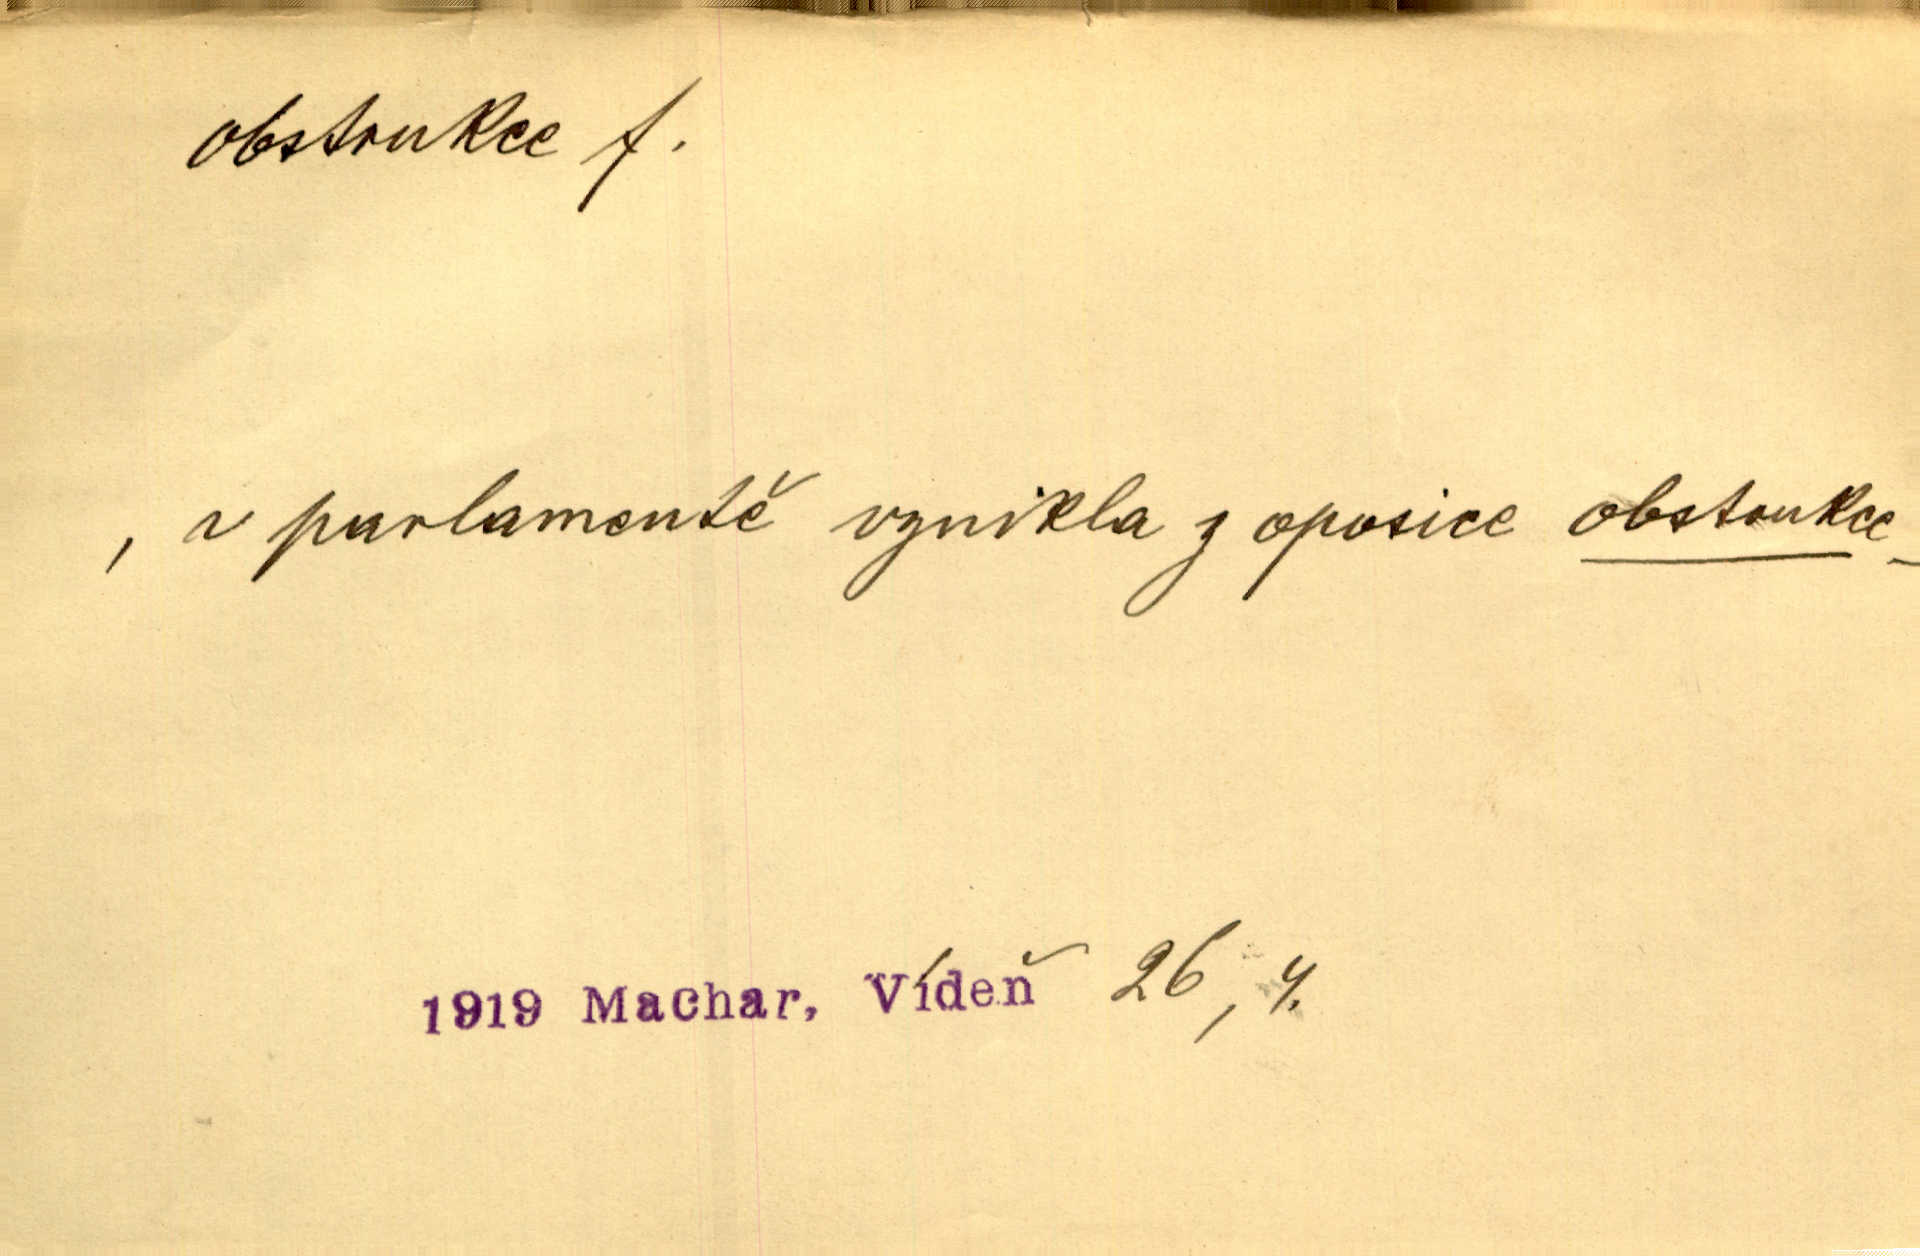 obstrukce f.
, v parlamentě vznikla z oposice obstrukce
1919 Machar, Vídeň 26, 4.